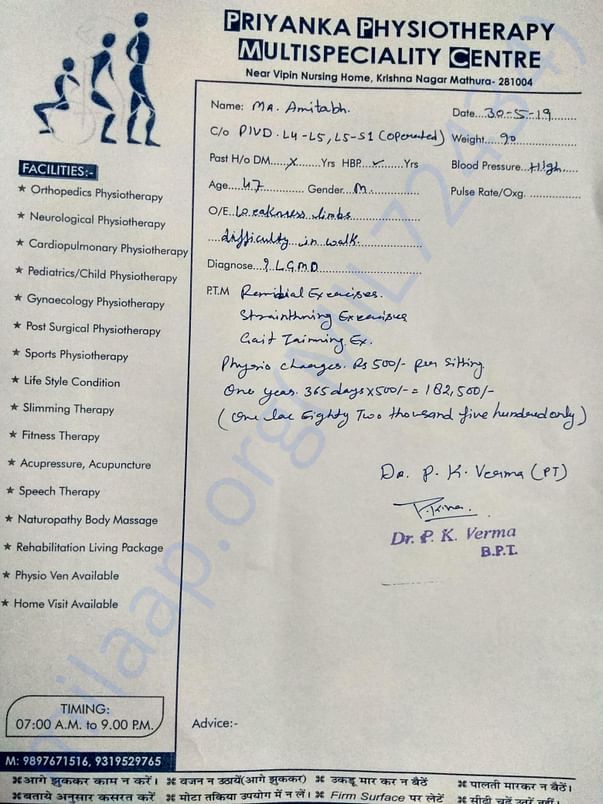 PRIYANKA PHYSIOTHERAPY
MULTISPECIALITY CENTRE
Near Vipin Nursing Home, Krishna Nagar Mathura- 281004
Name: Mr. Amitabh.
Date....30-5-19
C/o PIVD. L4-L5, L5-S1 (operated)
Weight....90
Past H/o DM....x....Yrs HBP..✓..Yrs
Blood Pressure...High
Age....47.... Gender....M.
Pulse Rate/Oxg. ...............
O/E. Weakness limbs
difficulty in walk.
Diagnose..? LGMD
P.T.M Remidial Exercises.
Strainthning Exercises
Gait Tainning Ex.
Physio charges. Rs 500/- per sitting
One years. 365 days x 500/- = 182,500/-
(One lac Eighty Two thousand five hundred only)
Dr. P. K. Verma (PT)
Dr. P. K. Verma
B.P.T.
FACILITIES:-
★ Orthopedics Physiotherapy
★ Neurological Physiotherapy
★ Cardiopulmonary Physiotherapy
★ Pediatrics/Child Physiotherapy
★ Gynaecology Physiotherapy
★ Post Surgical Physiotherapy
★ Sports Physiotherapy
★ Life Style Condition
★ Slimming Therapy
★ Fitness Therapy
★ Acupressure, Acupuncture
★ Speech Therapy
★ Naturopathy Body Massage
★ Rehabilitation Living Package
★ Physio Ven Available
★ Home Visit Available
TIMING:
07:00 A.M. to 9.00 P.M.
Advice:-
M: 9897671516, 9319529765
⌘आगे झुककर काम न करें। ⌘ वजन न उठायें(आगे झुककर) ⌘ उकडू मार कर न बैठें ⌘ पालती मारकर न बैठें।
⌘बताये अनुसार कसरत करें ⌘ मोटा तकिया उपयोग में न लें। ⌘ Firm Surface पर लेटें ⌘ सीढ़ी